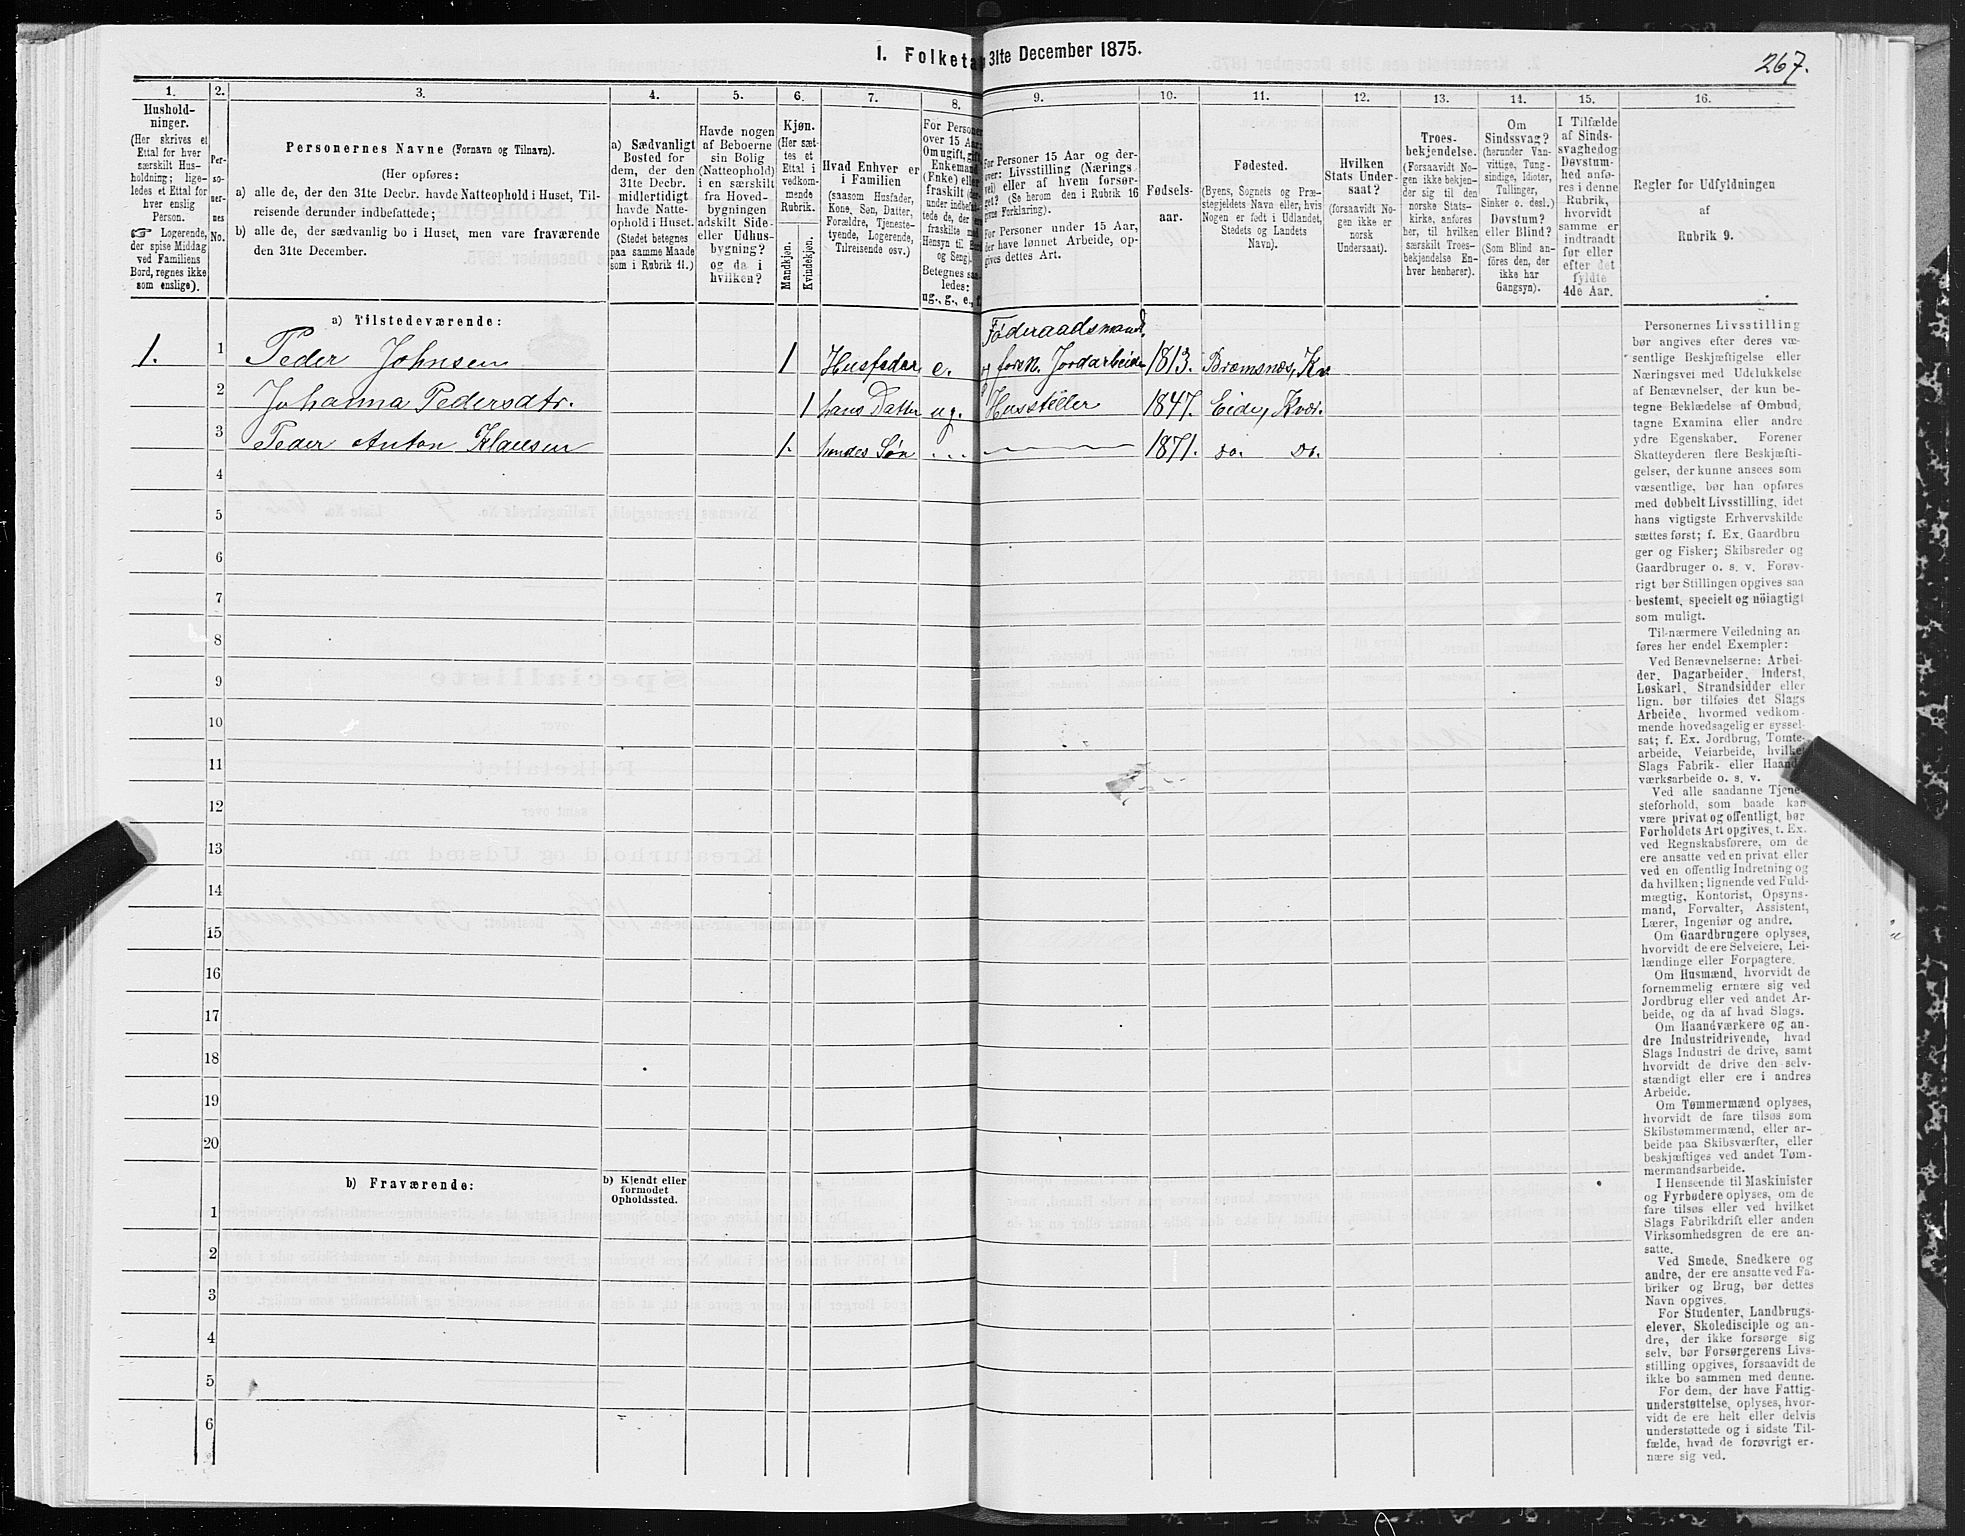 267.
I. Folketa 31te December 1875.
1. 2. 3. 4. 5. 6. 7. 8. 9. 10. 11. 12. 13. 14. 15. 16.
Hushold-
ninger.
(Her skrives et
Ettal for hver
særskilt Hus-
holdning; lige-
ledes et Ettal for
hver enslig
Person.
Logerende,
der spise Middag
ved Familiens
Bord, regnes ikke
som enslige).
Per-
so-
ner-
nes
No.
Personernes Navne (Fornavn og Tilnavn).
(Her opføres:
a) alle de, der den 31te Decbr. havde Natteophold i Huset, Til-
reisende derunder indbefattede;
b) alle de, der sædvanlig bo i Huset, men vare fraværende
den 31te December.
a) Sædvanligt
Bosted for
dem, der den
31te Decbr.
midlertidigt
havde Natte-
ophold i Huset.
(Stedet betegnes
paa samme Maade
som i Rubrik 11.)
Havde nogen
af Beboerne
sin Bolig
(Natteophold)
i en særskilt
fra Hoved-
bygningen
adskilt Side-
eller Udhus-
bygning?
og da i
hvilken?
Kjøn.
(Her sæt-
tes et
Ettal i
vedkom-
mende
Rubrik.
Mandkjøn.
Kvindekjøn.
Hvad Enhver er
i Familien
(saasom Husfader,
Kone, Søn, Datter,
Forældre, Tjeneste-
tyende, Logerende,
Tilreisende osv.)
For Persone
over 15 Aar:
Om ugift, gift
Enkemand
(Enke) eller
fraskilt
Betegnes saa
ledes:
ug., g., e., f.
For Personer 15 Aar og der-
over: Livsstilling (Nærings
vei) eller af hvem forsør-
get? (Se herom den i Rubrik 16
givne Forklaring).
For Personer under 15 Aar,
der have lønnet Arbeide, op-
gives dettes Art.
Fødsels-
aar.
Fødested.
(Byens, Sognets og Præ-
stegjeldets Navn eller, hvis
Nogen er født i Udlandet,
Stedets og Landets
Navn).
Hvilken
Stats Under-
saat?
(forsaavidt No-
gen ikke er
norsk
Undersaat).
Troes-
bekjendelse.
(Forsaavidt No-
gen ikke bekjen-
der sig til den
norske Stats-
kirke, anføres
her, til hvilken
særskilt Troes-
bekjendelse En-
hver henhører).
Om
Sindssvag?
(herunder Van-
vittige, Tung-
sindige, Idioter,
Tullinger,
Sinker o. desl.)
Døvstum?
eller Blind?
(Som Blind an-
føres den, der
ikke har
Gangsyn).
I Tilfælde
af Sinds-
svaghedog
Døvstum-
hed anfø-
res i denne
Rubrik,
hvorvidt
samme er
indtraadt
før eller
efter det
fyldte
4de Aar.
Regler for Udfyldningen
af
Rubrik 9.
a) Tilstedeværende:
Føderaadsmand
1. 1 Peder Johnsen 1 Husfader e. og forh. Jordarbeider 1813. Bremsnes, Kv.
2 Johanna Pedersdtr. 1 hans Datter ug. Hussteller 1847. Eide, Kvær.
3 Peder Anton Klausen 1. hendes Søn 1871. do. Do.
4
5
6
7
8
9
10
11
12
13
14
15
16
17
18
19
20
b) Fraværende:
b) Kjendt eller
formodet
Opholdssted.
1
2
3
4
5
6
Personernes Livsstilling
bør angives efter deres væ-
sentlige Beskjæftigelse eller
Næringsvei med Udelukkelse
af Benævnelser, der kun be-
tegne Beklædelse af Ombud,
tagne Examina eller andre
ydre Egenskaber. Forener
Skatteyderen flere Beskjæfti-
gelser, der kunne ansees som
væsentlige, bør han opføres
med dobbelt Livsstilling, idet
hans vigtigste Erhvervskilde
sættes først; f. Ex. Gaardbru
ger og Fisker; Skibsreder og
Gaardbruger o. s. v. Forøv-
rigt bør Stillingen opgives saa
bestemt, specielt og nöiagtigt
som muligt.
Til nærmere Veiledning an
føres her endel Exempler:
Ved Benævnelserne: Arbei-
der, Dagarbeider, Inderst,
Løskarl, Strandsidder eller
lign. bør tilføies det Slags
Arbeide, hvormed vedkom-
mende hovedsagelig er syssel-
sat; f. Ex. Jordbrug, Tomte-
arbeide, Veiarbeide, hvilket
Slags Fabrik- eller Haand-
værksarbeide o. s. v.
Ved alle saadanne Tjene-
steforhold, som baade kan
være privat og offentligt, bør
Forholdets Art opgives, t. Ex.
ved Regnskabsførere, om de
ere ansatte ved en privat eller
ved en offentlig Indretning og
da hvilken; lignende ved Fuld-
mægtig, Kontorist, Opsyns-
mand, Forvalter, Assistent,
Lærer, Ingeniør og andre.
Om Gaardbrugere oplyses,
hvorvidt de ere Selveiere, Lei-
lændinge eller Forpagtere.
Om Husmænd, hvorvidt de
fornemmelig ernære sig ved
Jordbrug eller ved andet Ar-
beide, og da af hvad Slags.
Om Haandværkere og an-
dre Industridrivende, hvad
Slags Industri de drive, samt
hvorvidt de drive den selv-
stændigt eller ere i andres
Arbeide.
Om Tømmermænd oplyses,
hvorvidt de fare tilsøs som
Skibstømmermænd, eller ar-
beide paa Skibsværfter, eller
beskjæftiges ved andet Tøm-
mermandsarbeide.
I Henseende til Maskinister
og Fyrbødere oplyses, om de
fare tilsøs eller ved hvilket
Slags Fabrikdrift eller anden
Virksomhedsgren de ere an-
satte.
Ved Smede, Snedkere og
andre, der ere ansatte ved Fa-
briker og Brug, bør dettes
Navn opgives.
For Studenter, Landbrugs-
elever, Skoledisciple og an-
dre, der ikke forsørge sig
selv, bør Forsørgerens Livs-
stilling opgives, forsaavidt de
ikke bo sammen med denne.
For dem, der have Fattig-
understøttelse, oplyses, hvor-
vidt de ere helt eller delvis
understøttede og i sidste Til-
fælde, hvad de forøvrigt er-
nære sig ved.